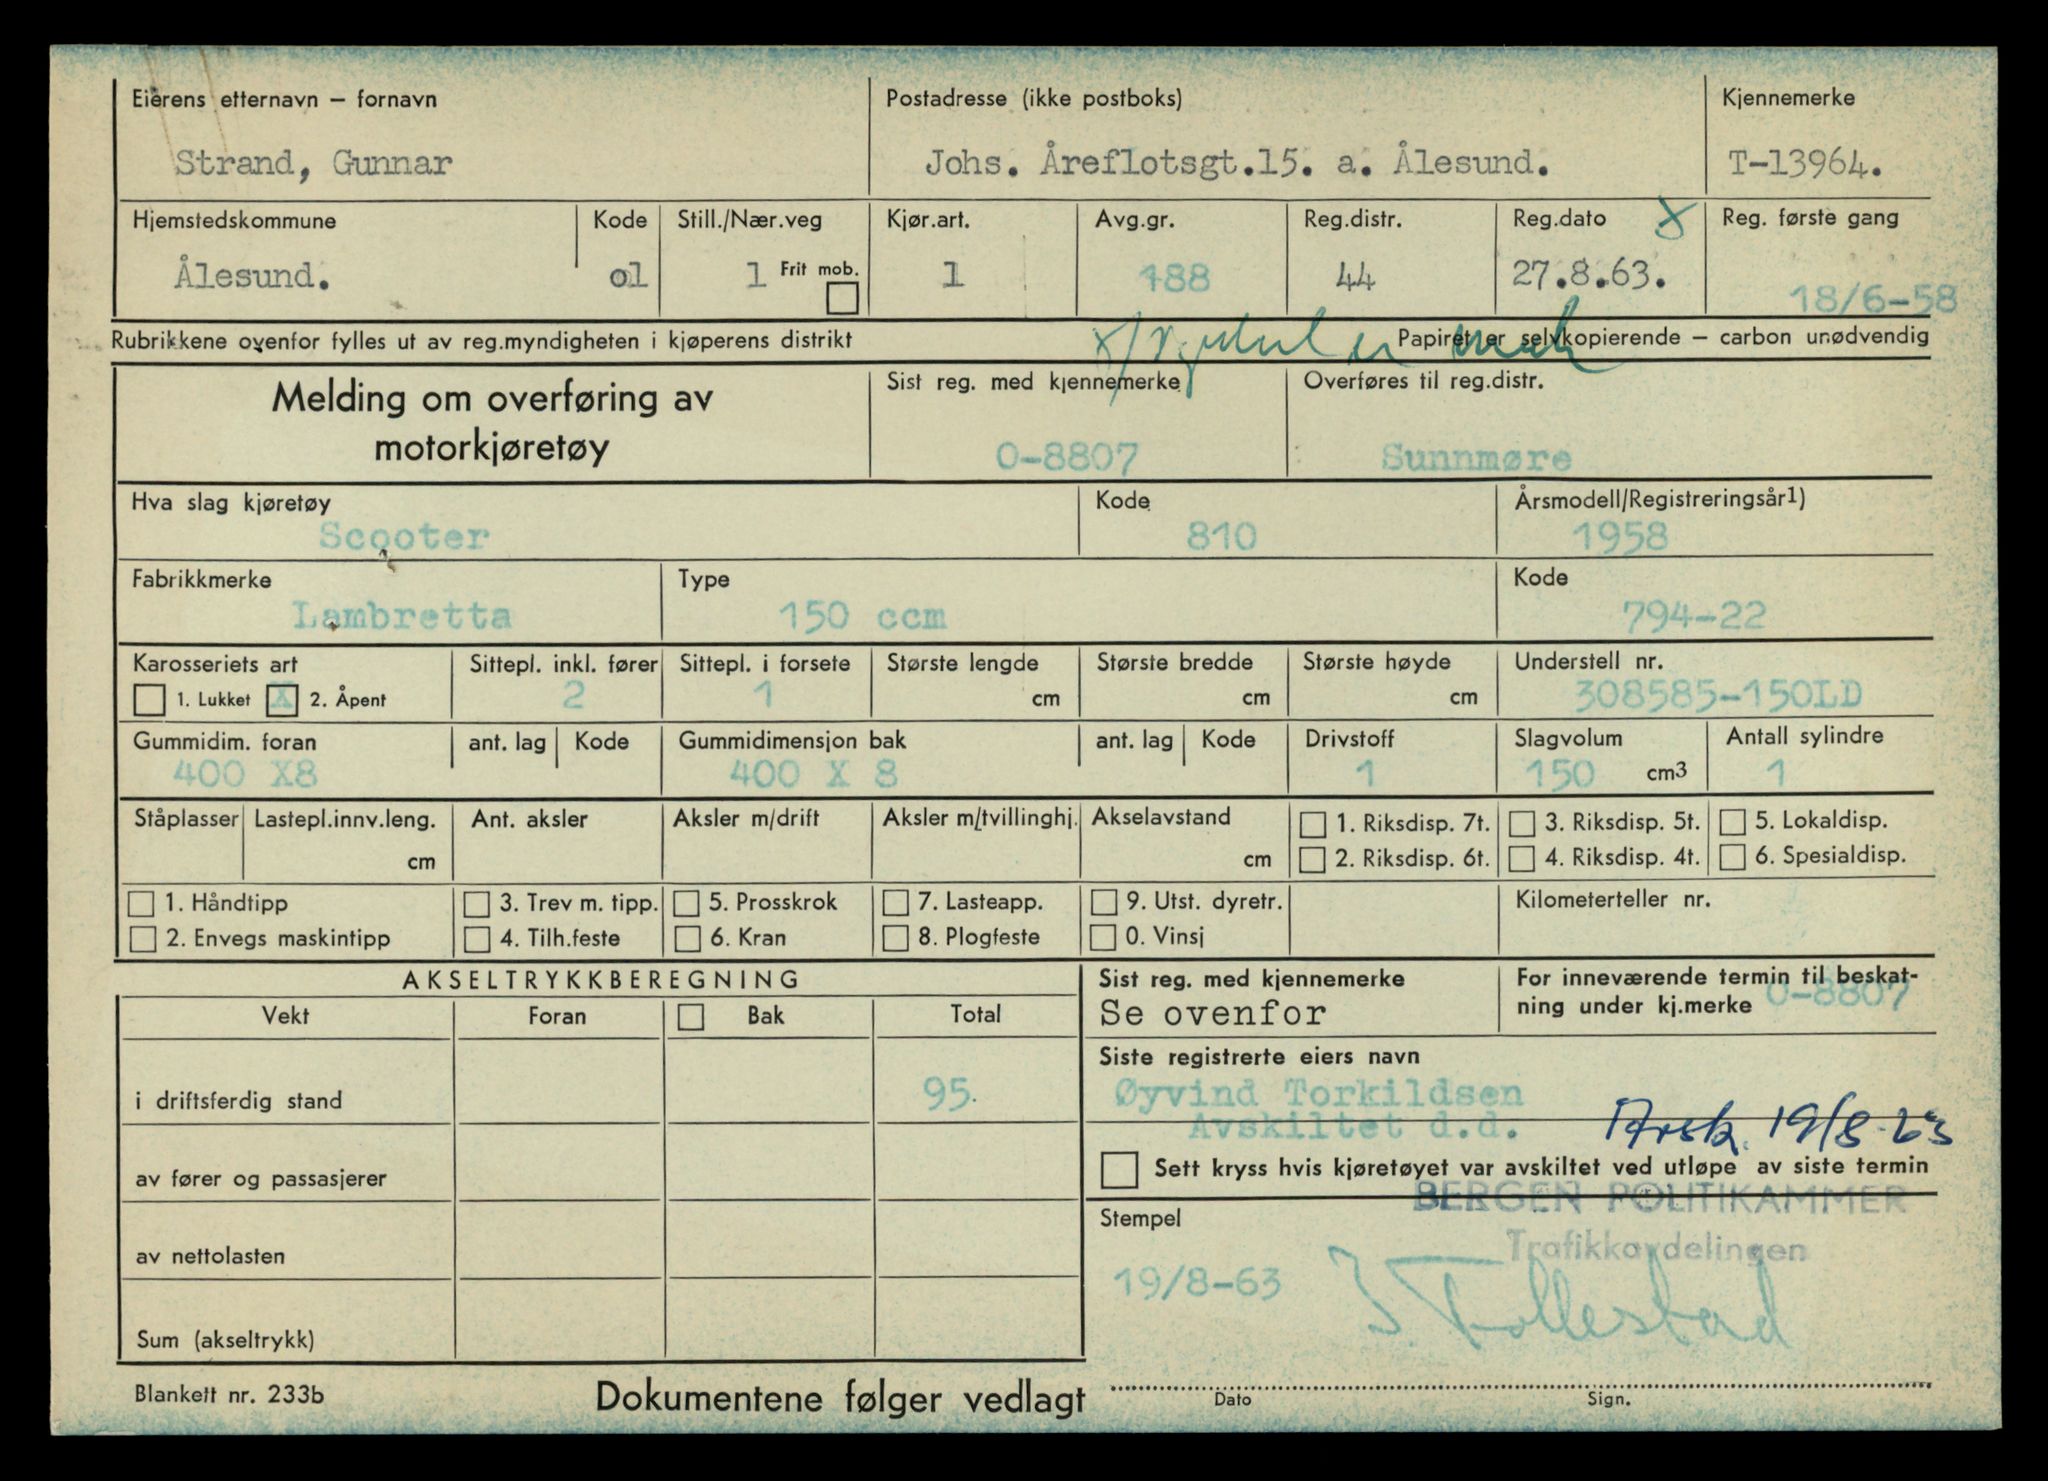 Eierens etternavn – fornavn Postadresse (ikke postboks) Kjennemerke
Strand, Gunnar Johs. Åreflotsgt.15. a. Ålesund. T-13964.
Hjemstedskommune Kode Still./Nær.veg Kjør.art. Avg.gr. Reg.distr. Reg.dato x Reg. første gang
Ålesund. ol 1 Frit mob. 1 188 44 27.8.63. 18/6-58
Rubrikkene ovenfor fylles ut av reg.myndigheten i kjøperens distrikt Papiret er selvkopierende – carbon unødvendig
Melding om overføring av
motorkjøretøy
Sist reg. med kjennemerke Overføres til reg.distr.
O-8807 Sunnmøre
Hva slag kjøretøy Kode Årsmodell/Registreringsår1)
Scooter 810 1958
Fabrikkmerke Type Kode
Lambretta 150 ccm 794-22
Karosseriets art Sittepl. inkl. fører Sittepl. i forsete Største lengde Største bredde Største høyde Understell nr.
1. Lukket X 2. Åpent 2 1 cm cm cm 308585-150LD
Gummidim. foran ant. lag Kode Gummidimensjon bak ant. lag Kode Drivstoff Slagvolum Antall sylindre
400 X8 400 X 8 1 150 cm3 1
Ståplasser Lastepl.innv.leng. Ant. aksler Aksler m/drift Aksler m/tvillinghj. Akselavstand 1. Riksdisp. 7t. 3. Riksdisp. 5t. 5. Lokaldisp.
cm cm 2. Riksdisp. 6t. 4. Riksdisp. 4t. 6. Spesialdisp.
1. Håndtipp 3. Trev m. tipp. 5. Prosskrok 7. Lasteapp. 9. Utst. dyretr. Kilometerteller nr.
2. Envegs maskintipp 4. Tilh.feste 6. Kran 8. Plogfeste 0. Vinsj
AKSELTRYKKBEREGNING
Vekt Foran Bak Total
i driftsferdig stand 95.
av fører og passasjerer
av nettolasten
Sum (akseltrykk)
Sist reg. med kjennemerke For inneværende termin til beskat-
Se ovenfor ning under kj.merke O-8807
Siste registrerte eiers navn
Øyvind Torkildsen
Avskiltet d.d. 19/8-63
Sett kryss hvis kjøretøyet var avskiltet ved utløpe av siste termin
BERGEN POLITIKAMMER
Stempel Trafikkavdelingen
19/8-63 Follestad
Dato Sign.
Blankett nr. 233b Dokumentene følger vedlagt